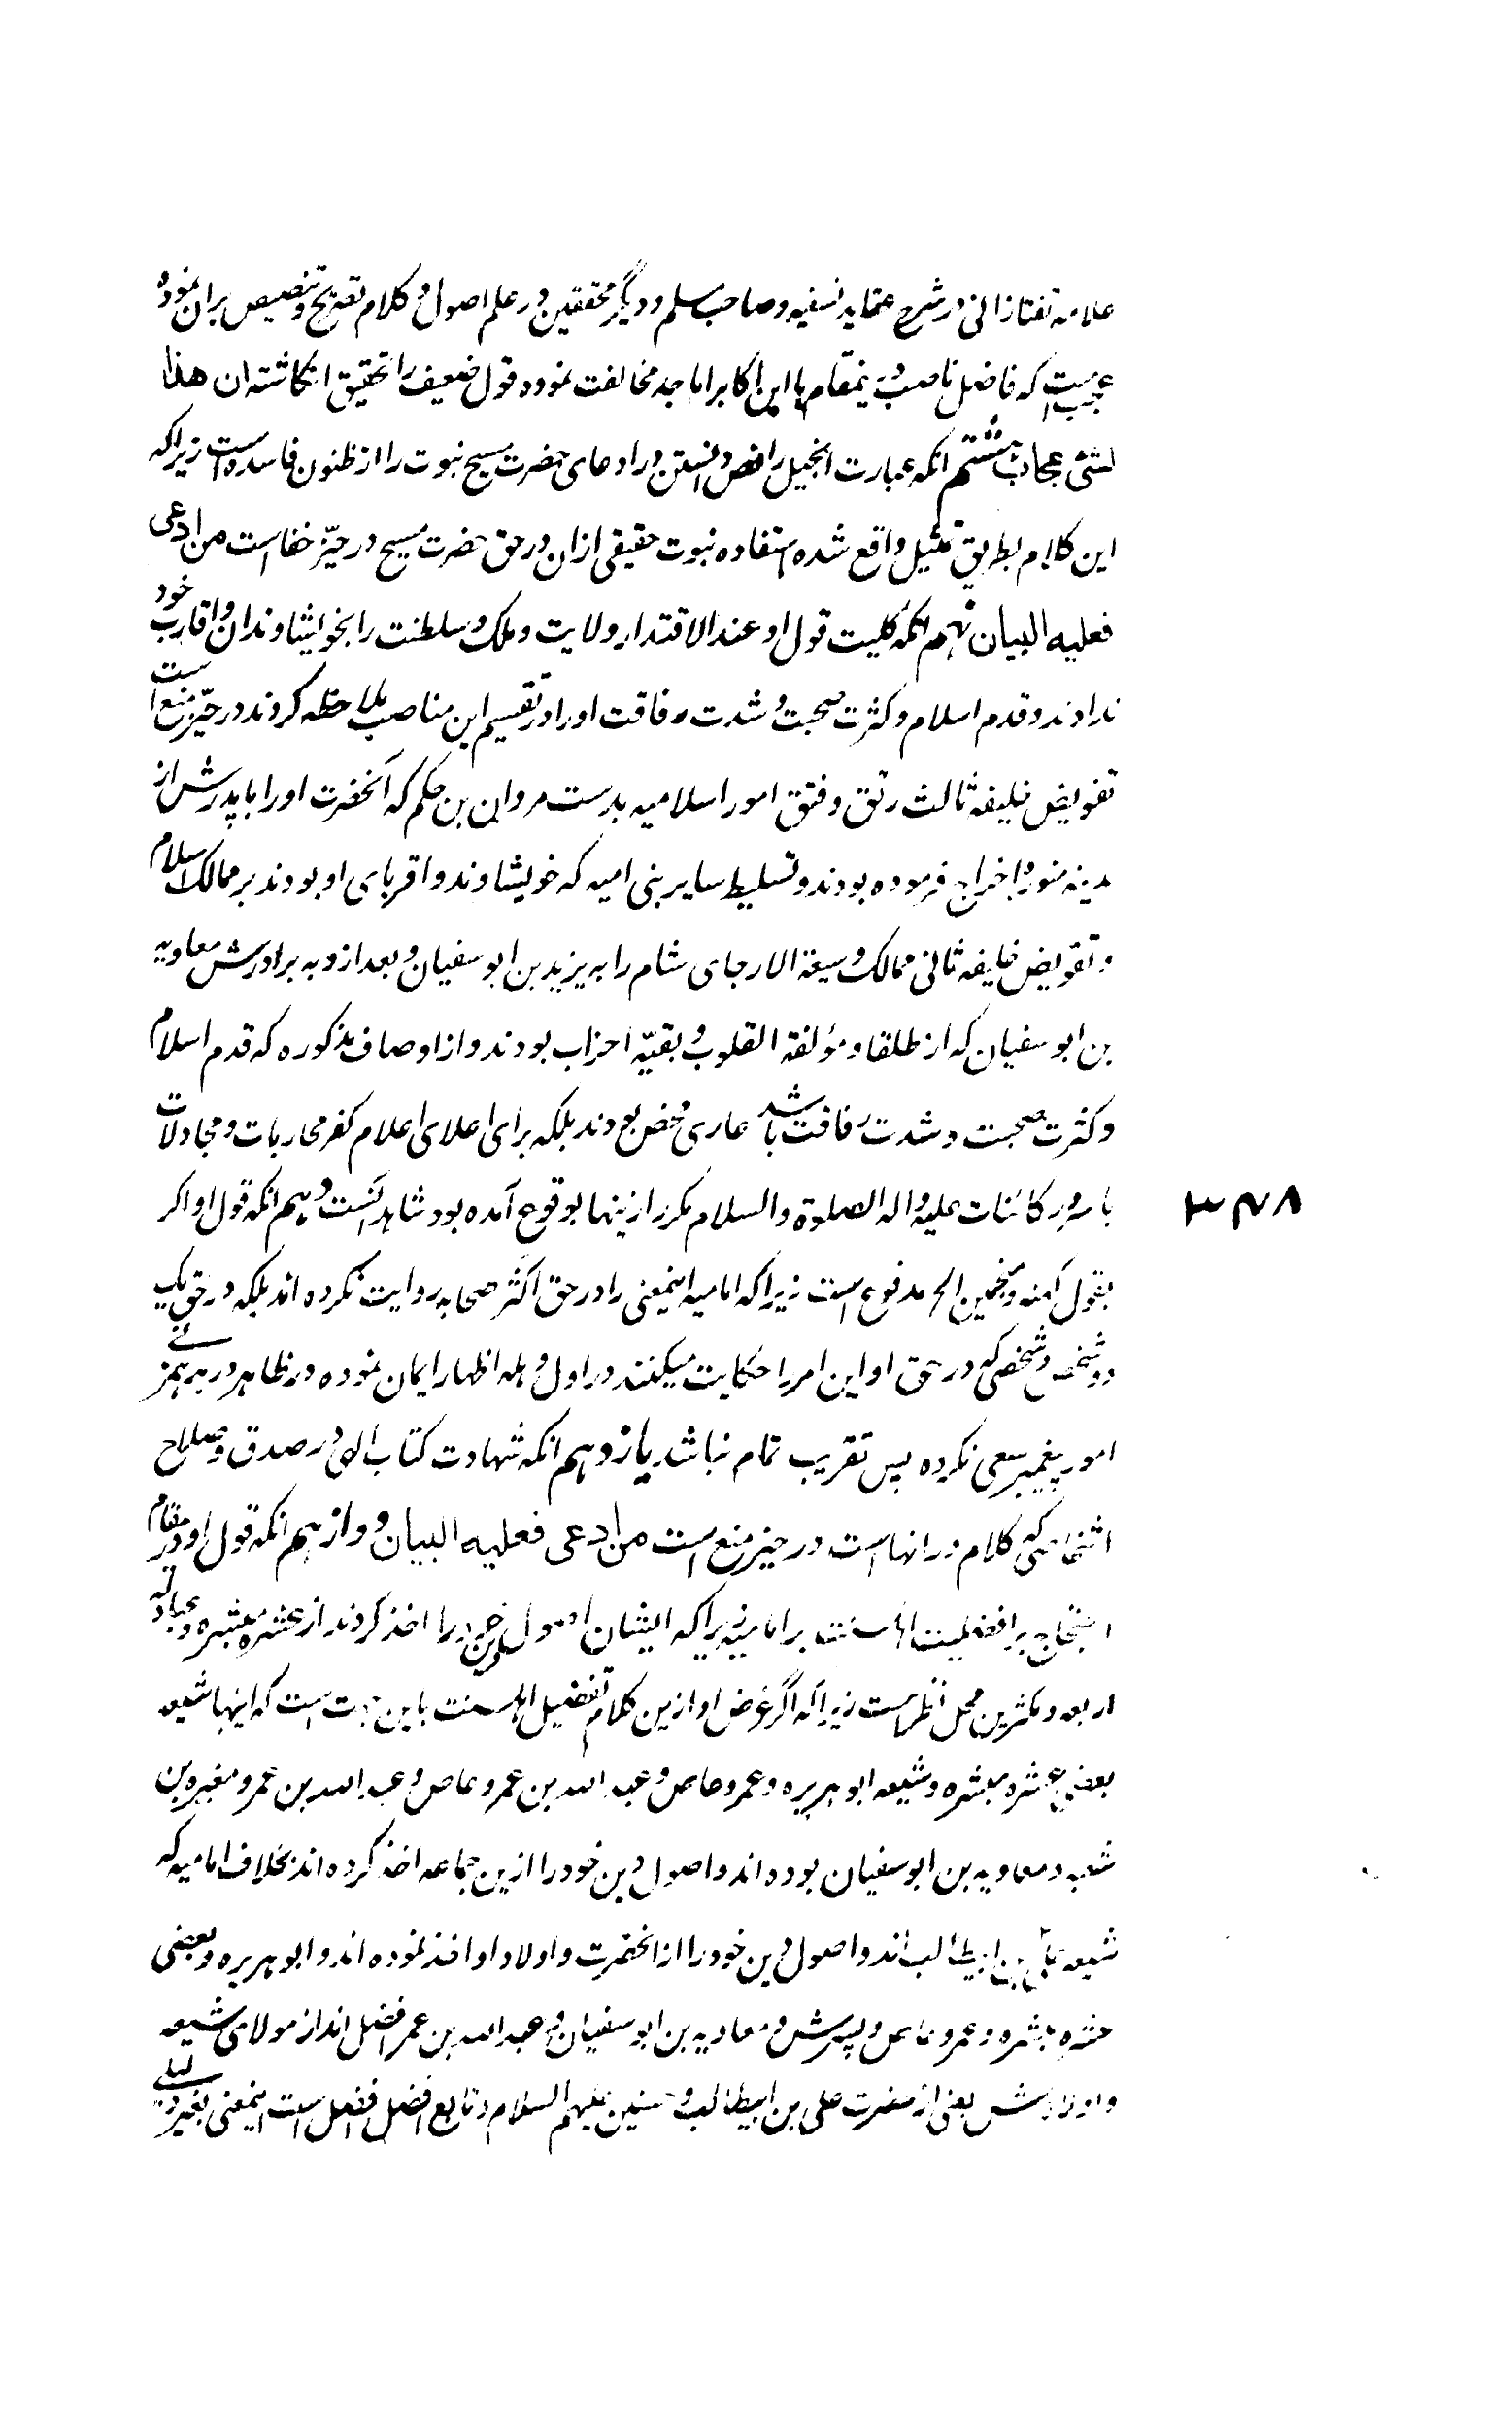 علامه تفتازانی در شرح عقاید نسفیه و صاحب مسلم و دیگر محققین در علم اصول و کلام تصریح و تنصیص بران نموده
عجیب ست که فاضل ناصب درینمقام با این اکابر اماجد مخالفت نموده قول ضعیف را تحقیق انکاشته ان هذا
لشئ عجاب هشتم انکه عبارت انجیل را نص دانستن در ادعای حضرت مسیح نبوت را از ظنون فاسده است زیراکه
این کلام بطریق تمثیل واقع شده استفاده نبوت حقیقی ازان در حق حضرت مسیح در حیّز خفا است من ادعی
فعلیه البیان نهم انکه کلیت قول او عند الاقتدار ولایت و ملک و سلطنت را بخویشاوندان و اقارب خود
ندادند و قدم اسلام و کثرت صحبت و شدت رفاقت او را در تقسیم این مناصب ملاحظه کردند در حیّز منع است
تفویض خلیفه ثالث رتق و فتق امور اسلامیه بدست مروان بن حکم که آنحضرت او را با پدرش از
مدینه منوره اخراج فرموده بودند و تسلیط سایر بنی امیه که خویشاوند و اقربای او بودند بر ممالک اسلام
و تفویض خلیفه ثانی ممالک وسیعة الارجای شام را به یزید بن ابو سفیان و بعد ازو به برادرش معاویه
بن ابو سفیان که از طلقا و مؤلفة القلوب و بقیّه احزاب بودند و از اوصاف مذکوره که قدم اسلام
و کثرت صحبت و شدت رفاقت باشد عاری محض بودند بلکه برای اعلای اعلام کفر محاربات و مجادلات
با سرور کائنات علیه و اله الصلوة والسلام مکرر ازینها بوقوع آمده بود شاهد آنست دهم انکه قول او اکر
۳۴۸
بقول کهنه و منجمین الخ مدفوع است زیراکه امامیه اینمعنی را در حق اکثر صحابه روایت نکرده اند بلکه در حق یک
دو شخص و شخصی که در حق او این امر را حکایت میکنند در اول وهله اظهار ایمان نموده در ظاهر در برهمزنی
امور پیغمبر سعی نکرده پس تقریب تمام نباشد یازدهم انکه شهادت کتاب الهی در صدق و صلاح
اشخاصی که کلام در انهاست در حیز منع است من ادعی فعلیه البیان دوازدهم انکه قول او در مقام
احتجاج بر افضلیت اهل سنت بر امامیه زیراکه ایشان اصول دین خود را اخذ کردند از عشره مبشره و عبادله
اربعه و مکثرین محل نظر است زیراکه اگر غرض او ازین کلام تفضیل اهل سنت باین جهت است که اینها شیعه
بعضی عشره مبشره و شیعه ابو هریره و عمرو عاص و عبد الله بن عمرو عاص و عبد الله بن عمر و مغیره بن
شعبه و معاویه بن ابو سفیان بوده اند و اصول دین خود را ازین جماعه اخذ کرده اند بخلاف امامیه که
شیعه علی بن ابیطالب اند و اصول دین خود را از انحضرت و اولاد او اخذ نموده اند و ابو هریره و بعضی
عشره مبشره و عمرو عاص و پسرش و معاویه بن ابو سفیان و عبد الله بن عمر افضل اند از مولای شیعه
و اولادش یعنی از حضرت علی بن ابیطالب و حسنین علیهم السلام و تابع افضل افضل است اینمعنی بغیر دلیلی